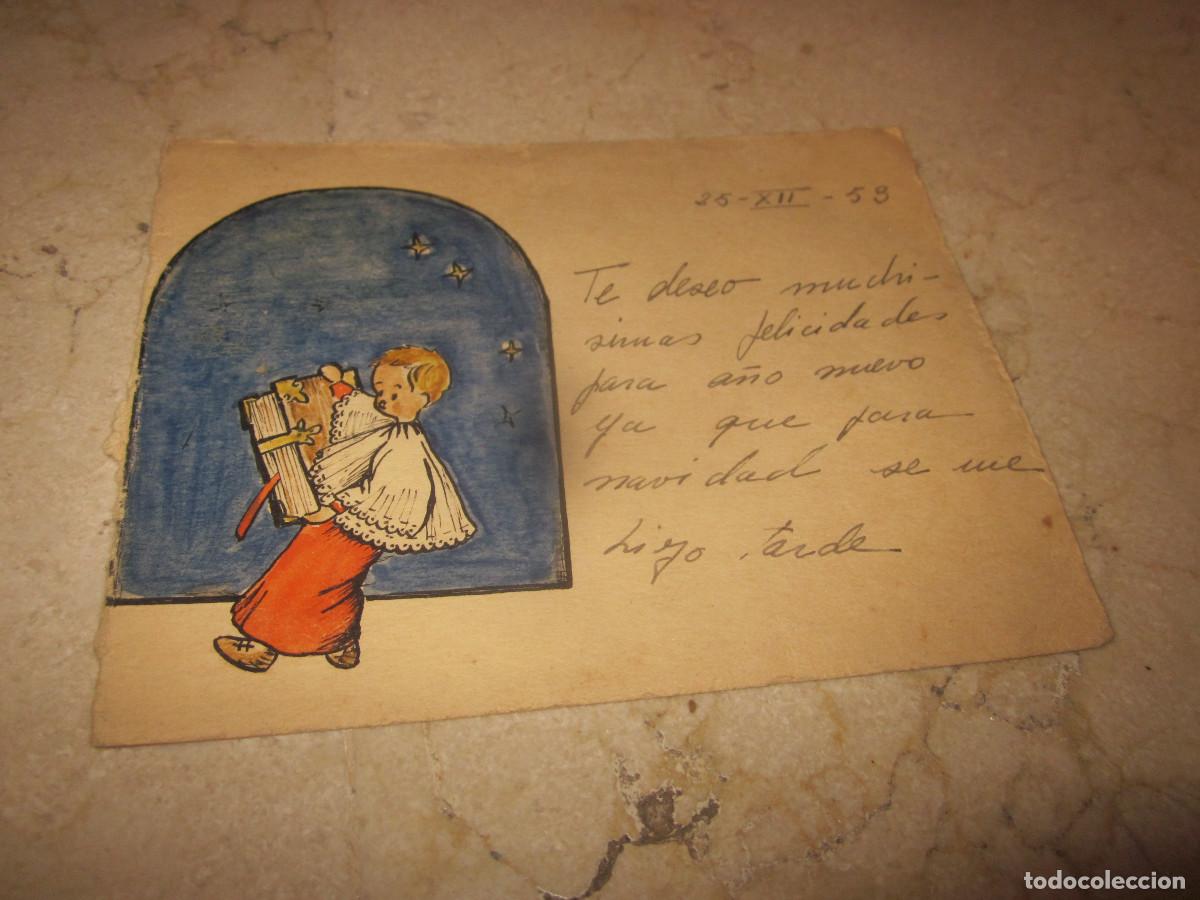 25-XII-53
Te deseo muchi-
simas felicidades
para año nuevo
ya que para
navidad se me
hizo tarde
todocoleccion